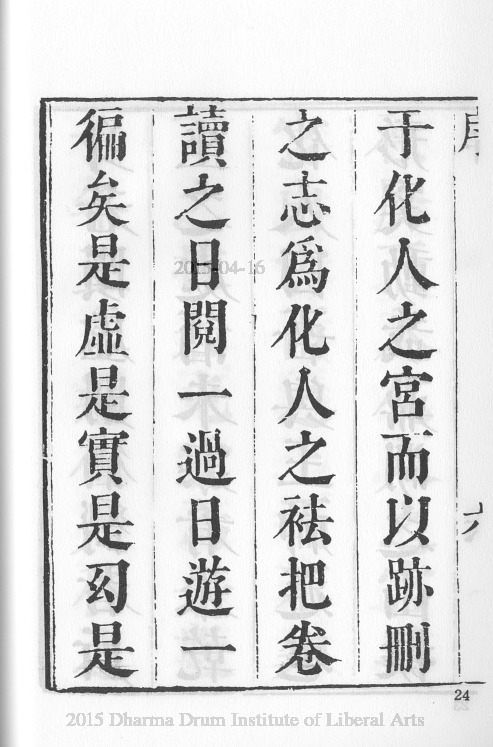 于化人之宮而以跡刪
之志爲化人之袪把卷
讀之日閱一過日遊一
徧矣是虛是實是幻是
2015-04-16
24
2015 Dharma Drum Institute of Liberal Arts